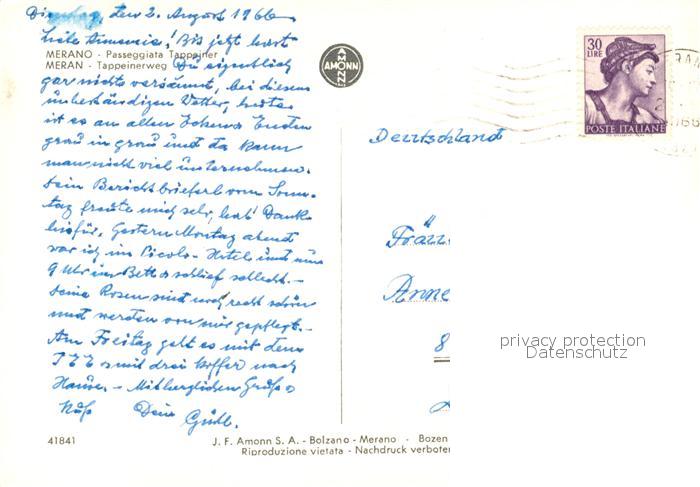 Dienstag, den 2. August 1966
Liebe Annemarie! Bis jetzt hast
MERANO - Passeggiata Tappeiner
MERAN - Tappeinerweg
Du eigentlich
gar nichts versäumt, bei diesem
unbeständigen Wetter, heute
ist es an allen Ecken u. Enden
grau in grau und da kann
man nicht viel unternehmen.
Dein Berichtbrieferl vom Sonn-
tag freute mich sehr, hab' Dank
hiefür. Gestern Montag abend
war ich im Picolo-Hotel und um
9 Uhr im Bett u. schlief schlecht.-
Deine Rosen sind noch recht schön
und werden von mir gepflegt.-
Am Freitag geht es mit dem
TEE u. mit drei Koffer nach
Hause. - Mit herzlichen Gruß u
Kuß Dein
Gustl.
AMONN
AMONN
30
LIRE
POSTE ITALIANE
Deutschland
Fräu
Anne
8
privacy protection
Datenschutz
41841
J. F. Amonn S. A. - Bolzano - Merano - Bozen
Riproduzione vietata - Nachdruck verboten